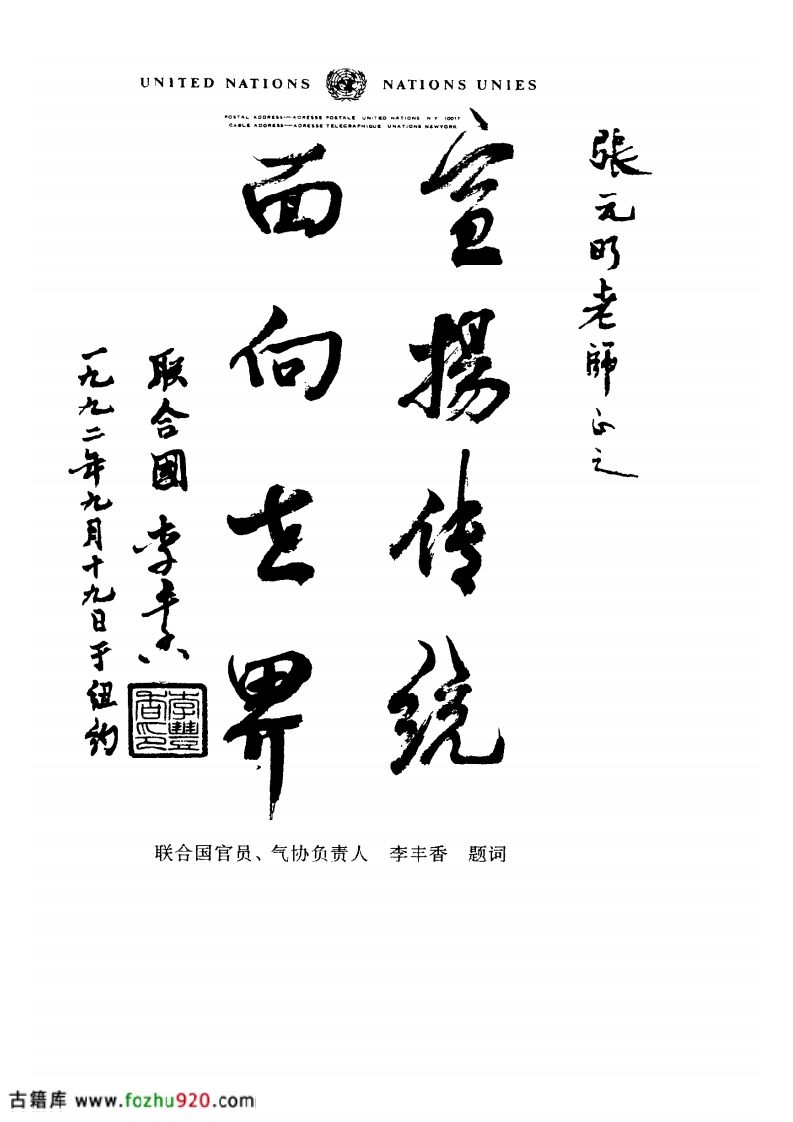 UNITED NATIONS NATIONS UNIES
POSTAL ADDRESS—ADRESSE POSTALE UNITED NATIONS N Y 10017
CABLE ADDRESS—ADRESSE TELEGRAPHIQUE UNATIONS NEWYORK
張元明老師正之
宣揚传统
面向世界
联合國 李丰香
李豐香印
一九九二年九月十九日于纽約
联合国官员、气协负责人 李丰香 题词
古籍库 www.fozhu920.com